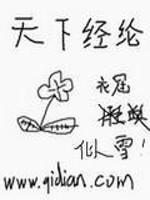 天下经纶
似雪!
www.qidian.com